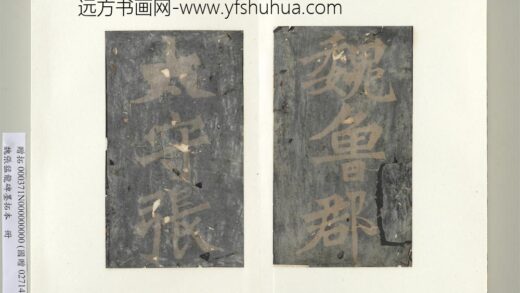 远方书画网-www.yfshuhua.com
魏魯郡
太守張
贈拓 000371N000000000 (國贈 02714
魏張猛龍碑墨拓本 冊